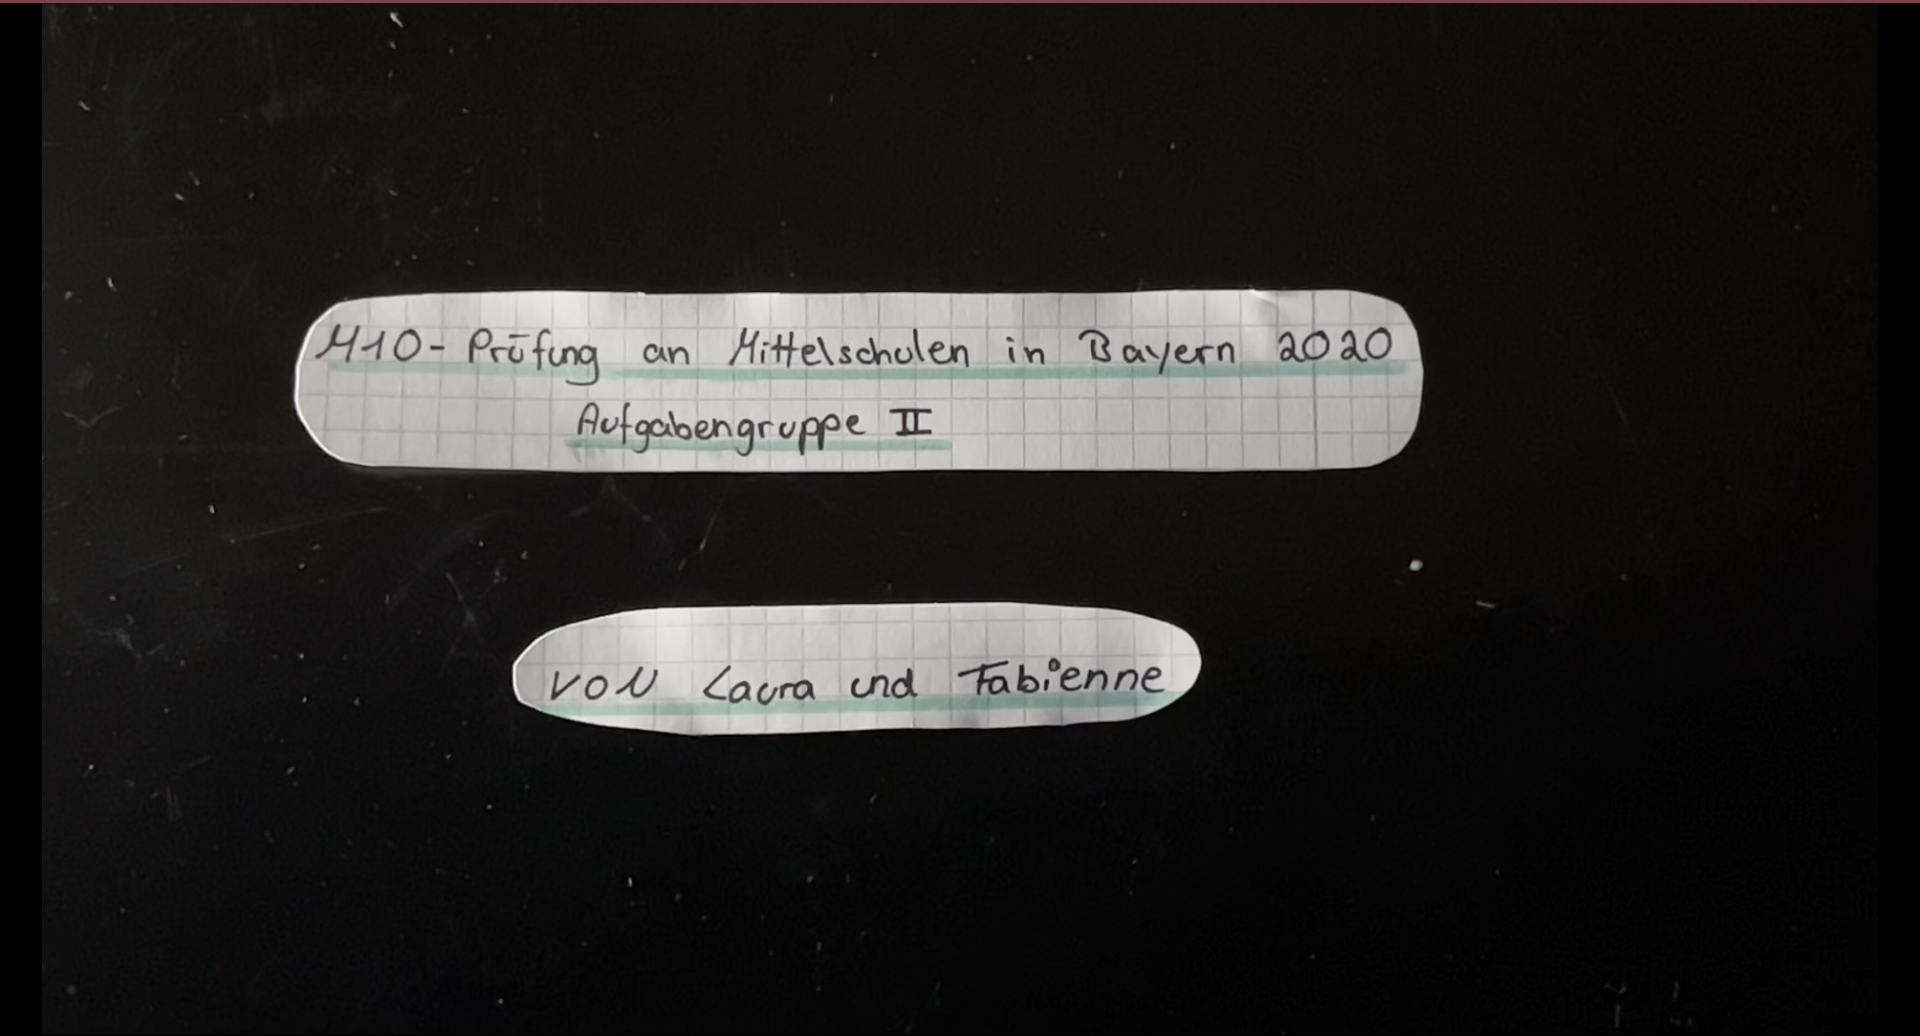 M10-Prüfung an Mittelschulen in Bayern 2020
Aufgabengruppe II
von Laura und Fabienne